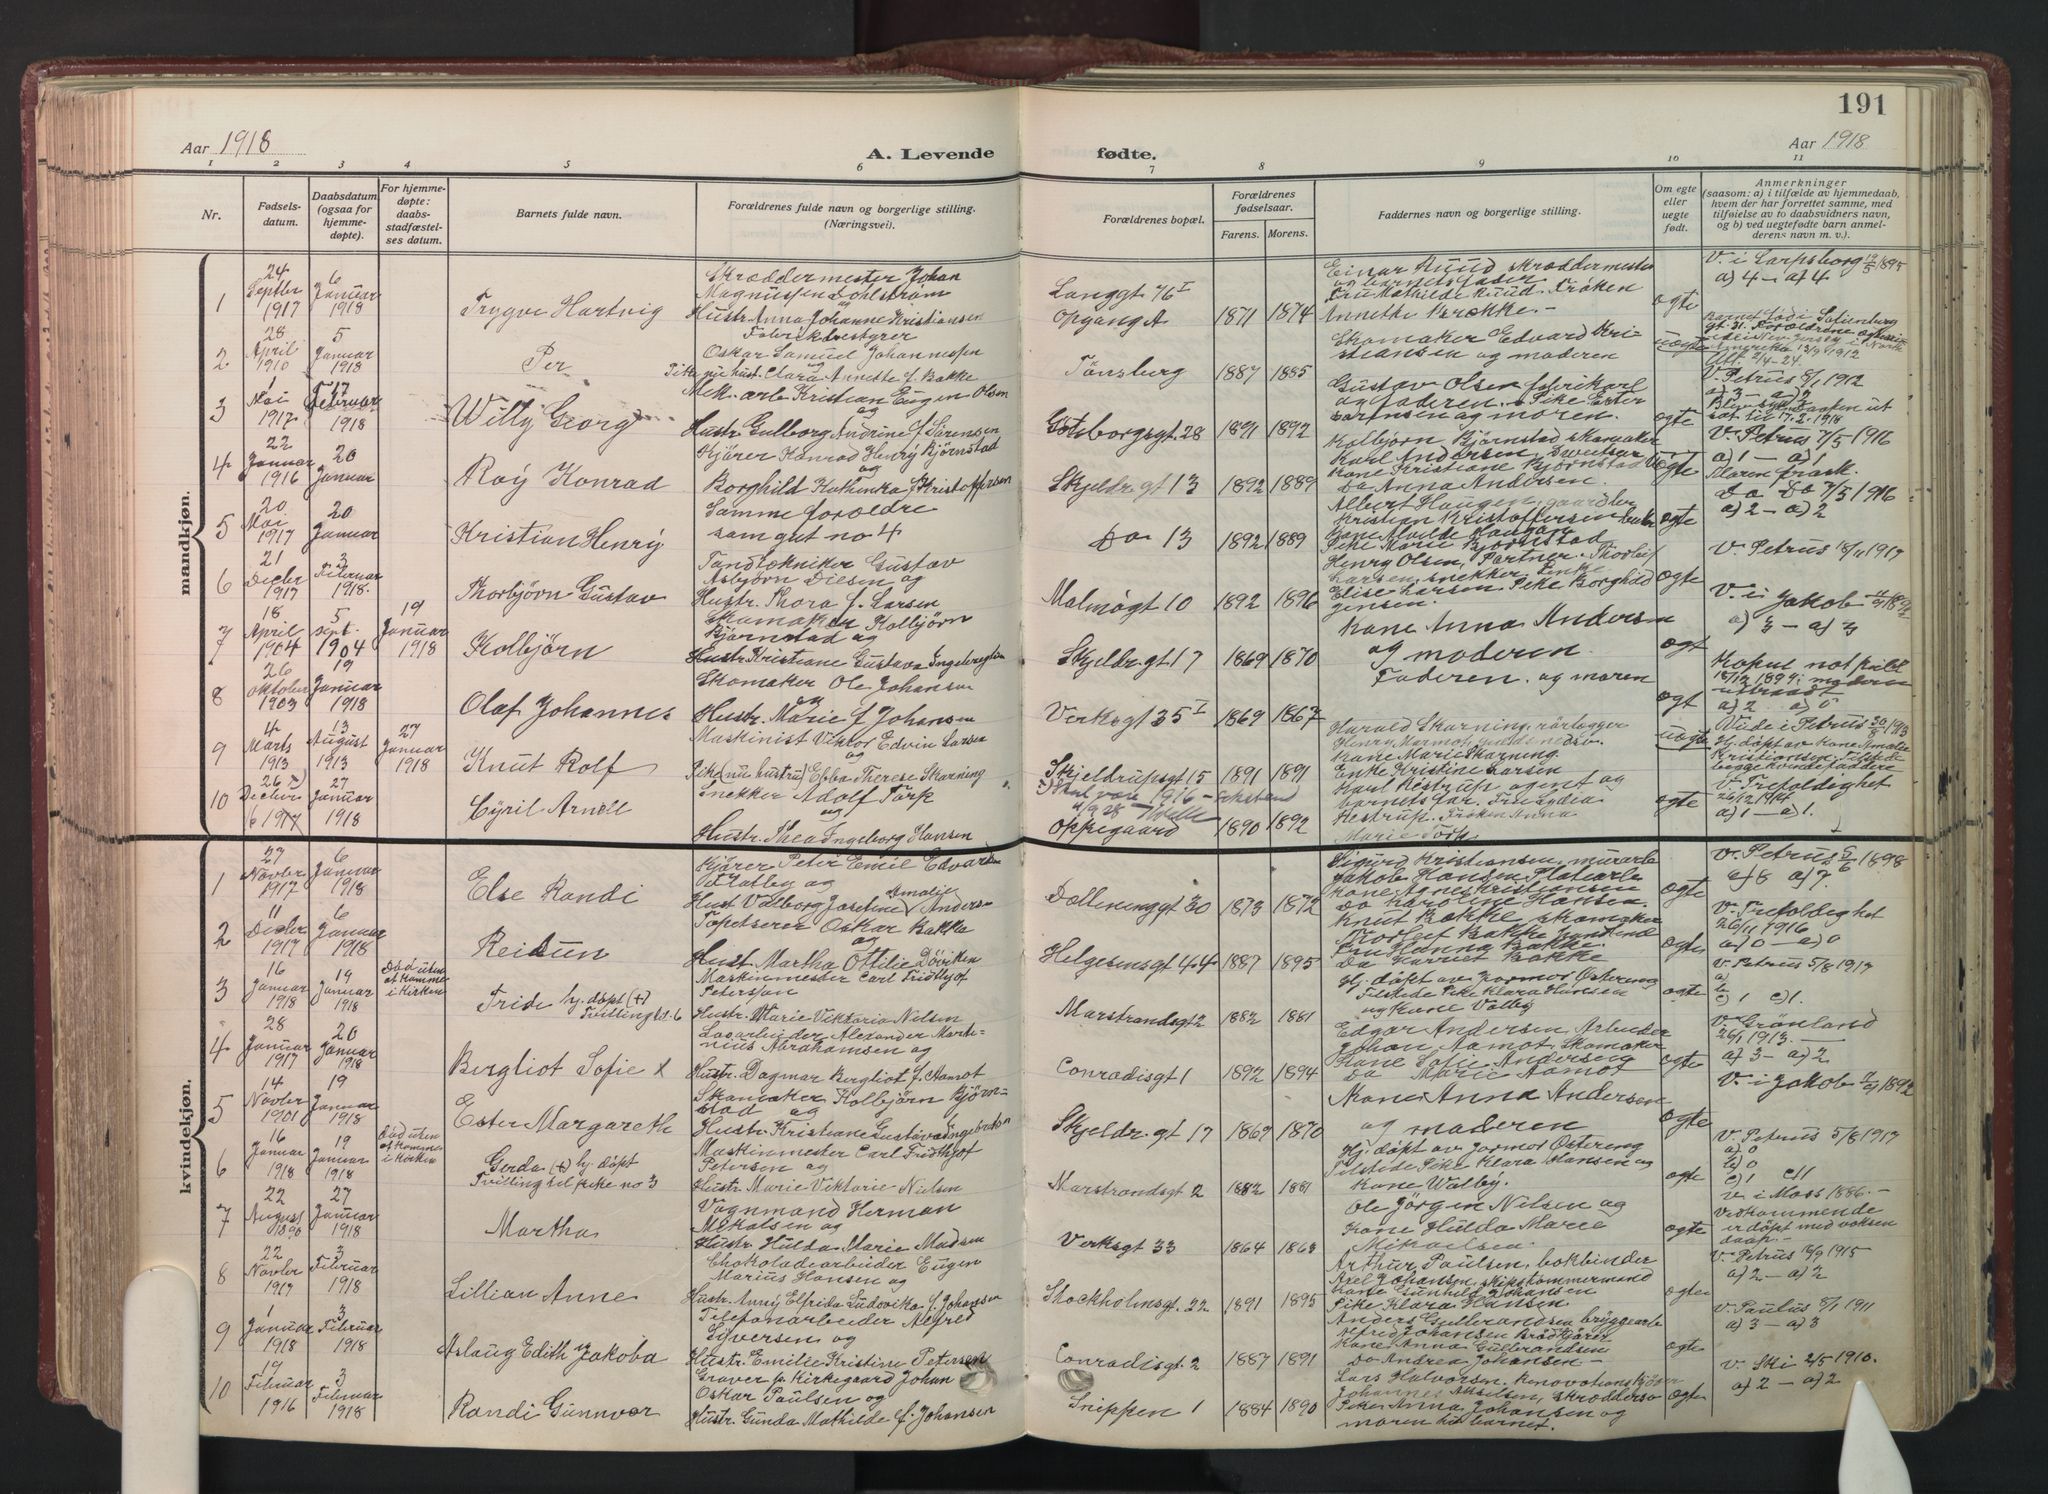 191
Aar 1918
A. Levende
fødte.
Aar 1918
1 2 3 4 5 6 7 8 9 10 11
Nr.
Fødsels-
datum.
Daabsdatum
(ogsaa for
hjemme-
døpte).
For hjemme-
døpte:
daabs-
stadfæstel-
ses datum.
Barnets fulde navn.
Forældrenes fulde navn og borgerlige stilling.
(Næringsvei).
Forældrenes bopæl.
Forældrenes
fødselsaar.
Farens. Morens.
Faddernes navn og borgerlig stilling.
Om egte
eller
uegte
født.
Anmerkninger
(saasom: a) i tilfælde av hjemmedaab,
hvem der har forrettet samme, med
tilføielse av to daabsvidners navn,
og b) ved uegtefødte barn anmel-
derens navn m. v.).
mandkjøn.
1
24 Septbr 1917
6 Januar 1918
Trygve Hartvig
Skræddermester Johan
Magnussen Dohlstrøm
og
Hustr. Anna Johanne Kristiansen
Langgt 76 I
Opgang A
1871 1874
Einar Ruud skræddermester
og barnets faden
Fru Mathilde Ruud. Frøken
Annethe Brække.
ægte
V. i Sarpsborg 1895
a) 4 — a) 4
2
28 April 1910
5 Januar 1918
Per
Fabrikbestyrer
Oskar Samuel Johannessen
og
Pike nu hust. Clara Annette f. Bakke
Tønsberg
1887 1885
Skomaker Edvard Kri-
stiansen og moderen
uægte
3
1 Mai 1917
17 Februar 1918
Willy Georg
Mek. arb Kristian Eugen Olsen
og
Hustr Gulborg Andrine f. Sørensen
Gøteborgsgt 28
1891 1892
Gustav Olsen fabrikarb
og faderen. Pike Ester
Sørensen og moren.
ægte
V. Petrus 8/1 1912
a) 3 — a) 2
4
22 Januar 1916
20 Januar
Roy Konrad
Kjører Konrad Henry Bjørnstad
og
Borghild Kathinka f Kristoffersen
Skjeldr. gt 13
1892 1889
Kolbjørn Bjørnstad skomaker
Karl Andersen,
Kone Kristiane Bjørnstad
Do Anna Andersen.
ægte
V. Petrus 7/5 1916
a) 1 — a) 1
5
20 Mai 1917
20 Januar
Kristian Henry
Samme forældre
som gut no 4
Do 13
1892 1889
Albert Haugen, gaardbr
Kristian Kristoffersen
Kone Hulda Haugen
Pike Marie Bjørnstad
ægte
Do Do 7/5 1916
a) 2 — a) 2
6
21 Decbr 1917
3 Februar 1918.
Thorbjørn Gustav
Tandtekniker Gustav
Asbjørn Diesen og
Hustr. Thora f. Larsen
Malmøgt 10
1892 1896
Henry Olsen, Portner. Thorleif
Larsen, snekker. Enke
Elise Larsen Pike Borghild
Jensen.
ægte
V. Petrus 18/11 1917
7
18 April 1904
5 sept. 1904
19 Januar 1918
Kolbjørn
Skomaker Kolbjørn
Bjørnstad og
Hustr. Kristiane Gustava Ingebregtsen
Skjeldr. gt 17
1869 1870
Kone Anna Andersen
og moderen.
ægt
V. i Jakob 1892
a) 3 — a) 3
8
26 oktober 1903
19 Januar 1918
Olaf Johannes
Skomaker Ole Johansen
og
Hustr. Marie f Johansen
Verksgt 35 I
1869 1867
Faderen. og moren
ægt
a) 2 a) 0
9
4 Marts 1913
13 August 1913
27 Januar 1918
Knut Rolf
Maskinist Viktor Edvin Larsen
og
Pike (nu hustru) Ebba Therese Skarning
Skjeldrupsgt 15
1891 1891
Harald Skarning, rørlegger
Kone Marie Skarning
Enke Kristine Larsen
uægte
Viede i Petrus 30/8 1913
Hj. døpt av Kone Amalie
Kristiansen.
10
26 Decbr 1917
27 Januar 1918
Cyril Arnell
Snekker Adolf Torp
og
Hustr. Thea Ingeborg Hansen
Oppegaard
1890 1892
Karl Hestrup agent og
barnets far. Fru Lydia
Hestrup. Frøken Anna
Marie Torp.
ægte
V. Trefoldighet
26/12 1914
a) 1 — a) 1.
kvindekjøn.
1
27 Novbr 1917
6 Januar 1918
Else Randi
Kjører Peter Emil Edvard
Flatby og
Hust Valborg Josefine Amalie Andersen
Dælenenggt 30
1873 1872
Sigurd Kristiansen, murarb
Jakob Hansen
Kone Agnes Kristiansen
Do Karoline Hansen.
ægte
V. Petrus 5/6 1898
a) 8 a) 7.
2
11 Decbr 1917
6 Januar 1918
Reidun
Tapetserer Oskar Bakke
og
Hust Martha Ottilie Døviken
Helgesensgt 44
1887 1895
Knut Bakke skomaker
Thorleif Bakke
Fru Hanna Bakke.
Do Harriet Bakke
ægte
V. Trefoldighet
26/11 1916
a) 0 — a) 0
3
16 Januar 1918
19 Januar 1918
Død uten
at komme
i kirken
Fride hj. døpt (+)
Tvilling til 6
Maskinmester Carl Fridtjof
Peterssen
Hustr. Marie Viktoria Nilsen
Marstrandsgt 2
1882 1881
Hj. døpt av Jormor Østereng
Tilstede Pike Klara Hansen
og Kone Valby
ægte
V. Petrus 5/8 1917
a)
b
c) 1 c) 1.
4
28 Januar 1917
20 Januar 1918
Bergliot Sofie x
Losarbeider Alexander Mart-
nius Abrahamsen og
Hustr. Dagmar Bergliot f. Aamot
Conradisgt 1
1892 1894
Edgar Andersen Arbeider
Johan Aamot, Skomaker
Kone Sofie Andersen
Do Marie Aamot
ægte
V. Grønland
26/1 1913. —
a) 3 — a) 2
5
14 Novbr 1901
19 Januar 1918
Ester Margareth
Skomaker Kolbjørn Bjørn-
stad og
Hustr. Kristiane Gustava Ingebretsen
Skjeldr. gt 17
1869 1870
Kone Anna Andersen
og moderen
ægte
V. i Jakob 1892
6
16 Januar 1918
19 Januar 1918
Død uten
at komme
i kirken
Gerda (+) hj. døpt
Tvilling til pike no 3
Maskinmester Carl Fridtjof
Petersen og
Hustr Marie Viktorie Nielsen
Marstrandsgt 2
1882 1881
Hj. døpt av Jormor Østereng
Tilstede Pike Klara Hansen og
Kone Walby.
ægte
V. Petrus 5/8 1917
a) 0
b) 0
c) 1 c) 1
7
22 August 1890
27 Januar 1918
Martha
Vognmand Herman
Mikalsen og
Hustr. Hulda Marie Madsen
Verksgt 33
1864 1863
Ole Jørgen Nilsen og
Kone Hulda Marie
Mikaelsen.
ægte
V. i Moss 1886. —
Vedkommende
er døpt med voksen
daap. —
8
22 Novbr 1917
3 Februar 1918
Lillian Anne
Chokoladearbeider Eugen
Marius Hansen og
Hustr. Anny Elfrida Ludovika f. Johansen
Stockholmsgt. 22
1891 1895
Arthur Paulsen, bokbinder
Axel Johansen, skipstømmermand
Kone Gunhild Johansen
Pike Klara Hansen
ægte
V. Petrus 16/9 1915
a) 2 — a) 2
9
1 Januar 1918
3 Februar 1918
Aslaug Edith Jakoba
Telefonarbeider Alfred
Syversen og
Hustr. Emilie Kristine Petersen
Conradisgt 2
1887 1891
Anders Gullerandsen bryggearb
Alfred Johansen Brødkjører
Kone Anna Gullerandsen
Do Andrea Johansen —
ægte
V. Paulus 8/1 1911
a) 3 — a) 3
10
19 Februar 1916
3 Februar 1918
Randi Gunnvor
Graver p Kirkegaard Johan
Oskar Paulsen og
Hustr. Gunda Mathilde f. Johansen
Snippen 1
1884 1890
Lars Halvorsen, Renovationskjører
Johannes Nilsen, skræddersv
Pike Anna Johansen og
moren til barnet.
ægte
V. Ski 2/5 1910.
a) 2 — a) 2